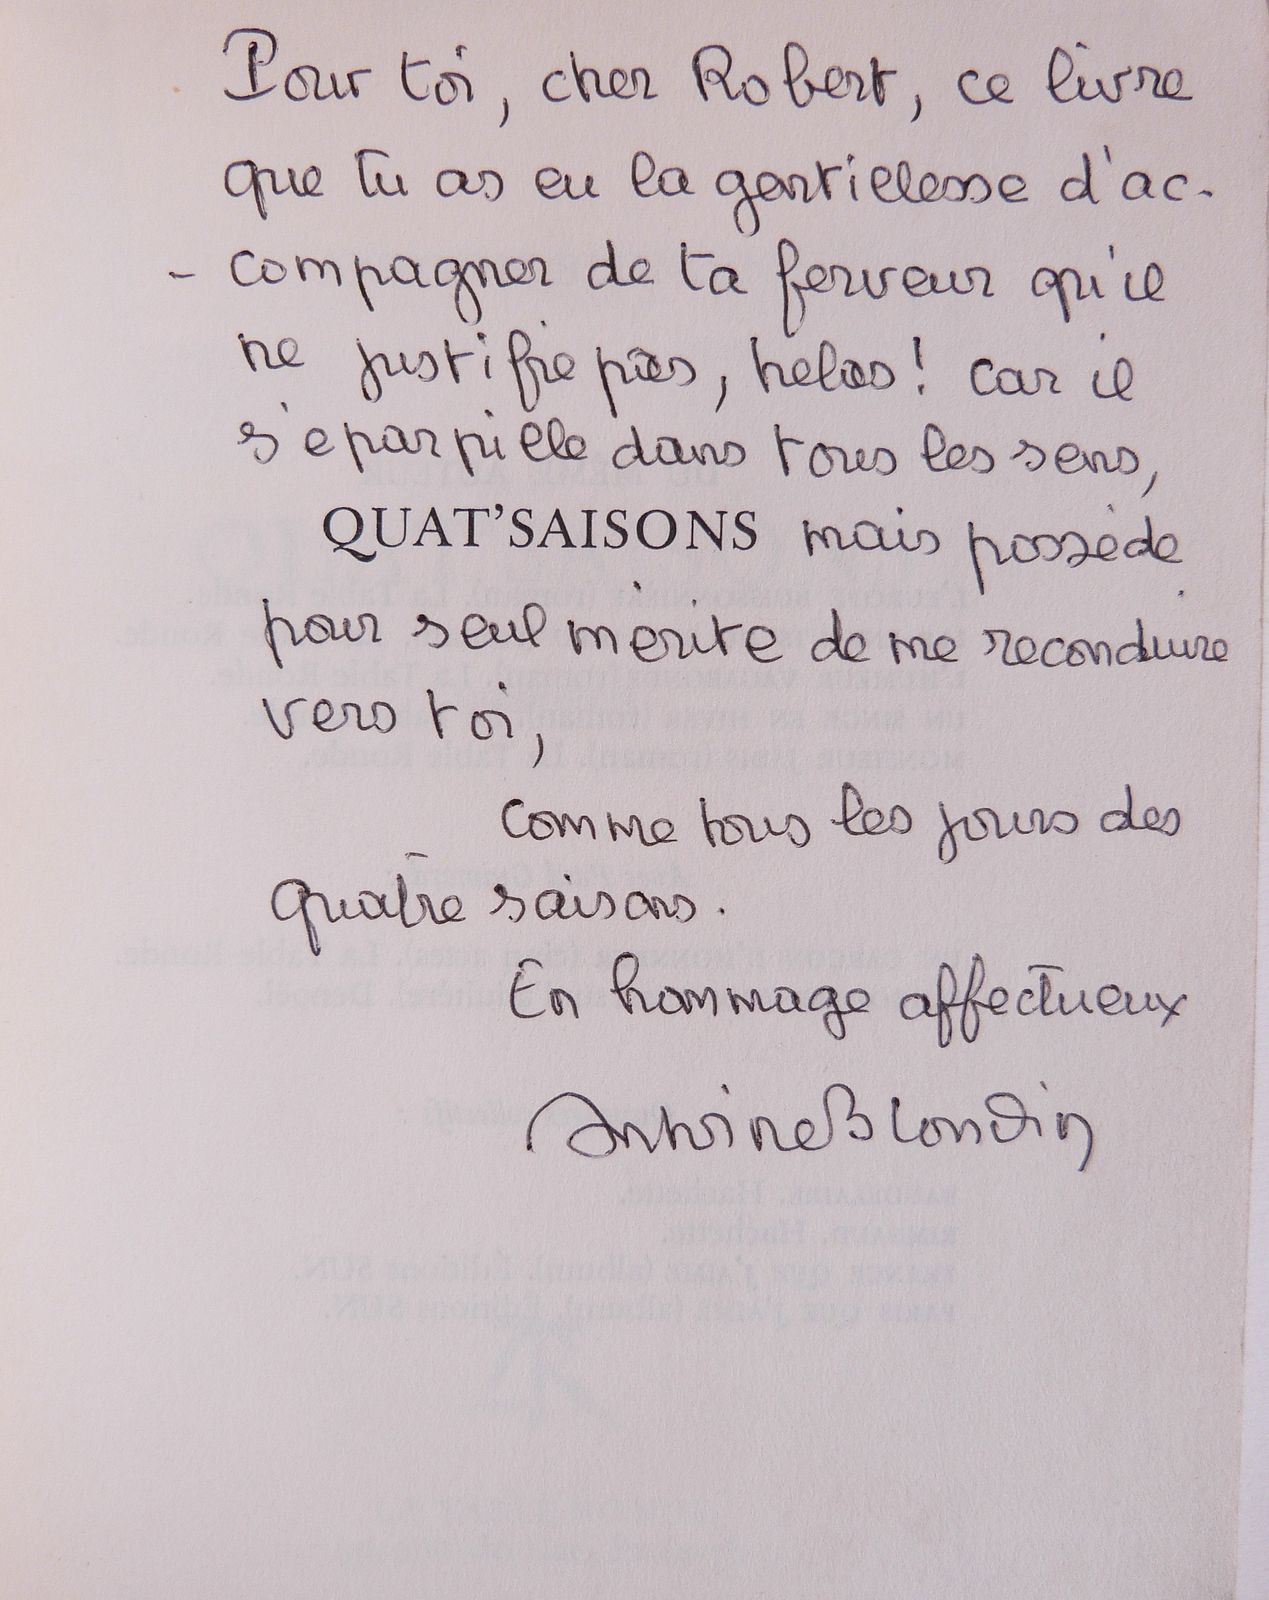 Pour toi, cher Robert, ce livre
que tu as eu la gentillesse d'ac-
- compagner de ta ferveur qu'il
ne justifie pas, helas! car il
s'eparpille dans tous les sens,
QUAT'SAISONS mais possède
pour seul merite de me reconduire
vers toi,
comme tous les jours des
quatre saisons.
En hommage affectueux
Antoine Blondin